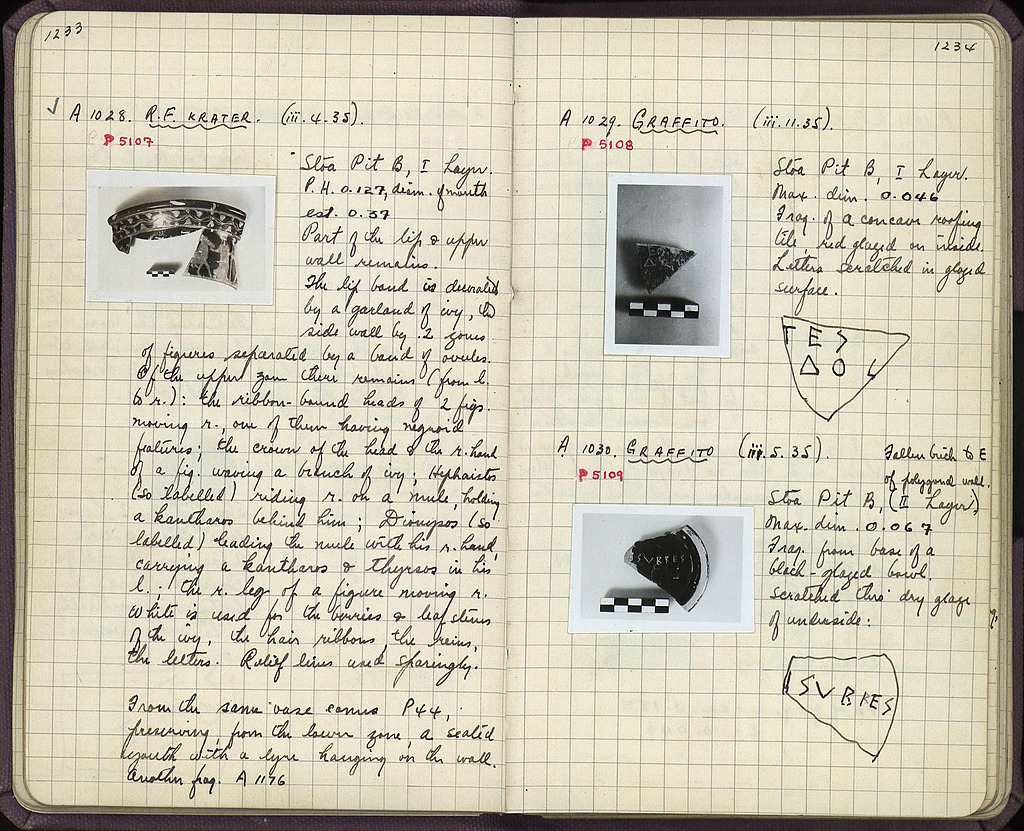 1233
A 1028. R.F. KRATER. (iii.4.35).
P 5107
Stoa Pit B, I Layer.
P.H. 0.127, diam. of mouth
est. 0.37
Part of the lip & upper
wall remains.
The lip band is decorated
by a garland of ivy, the
side wall by 2 zones
of figures separated by a band of ovules.
Of the upper zone there remains (from l.
to r.): the ribbon-bound heads of 2 figs.
moving r., one of them having negroid
features; the crown of the head & the r. hand
of a fig. waving a branch of ivy; Hephaistos
(so labelled) riding r. on a mule, holding
a kantharos behind him; Dionysos (so
labelled) leading the mule with his r. hand,
carrying a kantharos & thyrsos in his
l.; the r. leg of a figure moving r.
White is used for the berries & leaf stems
of the ivy, the hair ribbons, the reins,
the letters. Relief lines used sparingly.
From the same vase comes P44,
preserving, from the lower zone, a seated
youth with a lyre hanging on the wall.
Another frag. A 1176
1234
A 1029. GRAFFITO. (iii.11.35).
P 5108
Stoa Pit B, I Layer.
Max. dim. 0.046
Frag. of a concave roofing
tile, red glazed on inside.
Letters scratched in glazed
surface.
TES
ΔΟL
A 1030. GRAFFITO (iii.5.35).
P 5109
Fallen brick to E
of polygonal wall.
Stoa Pit B, (II Layer)
Max. dim. 0.067
Frag. from base of a
black-glazed bowl.
Scratched thro' dry glaze
of underside:
ISVBRES